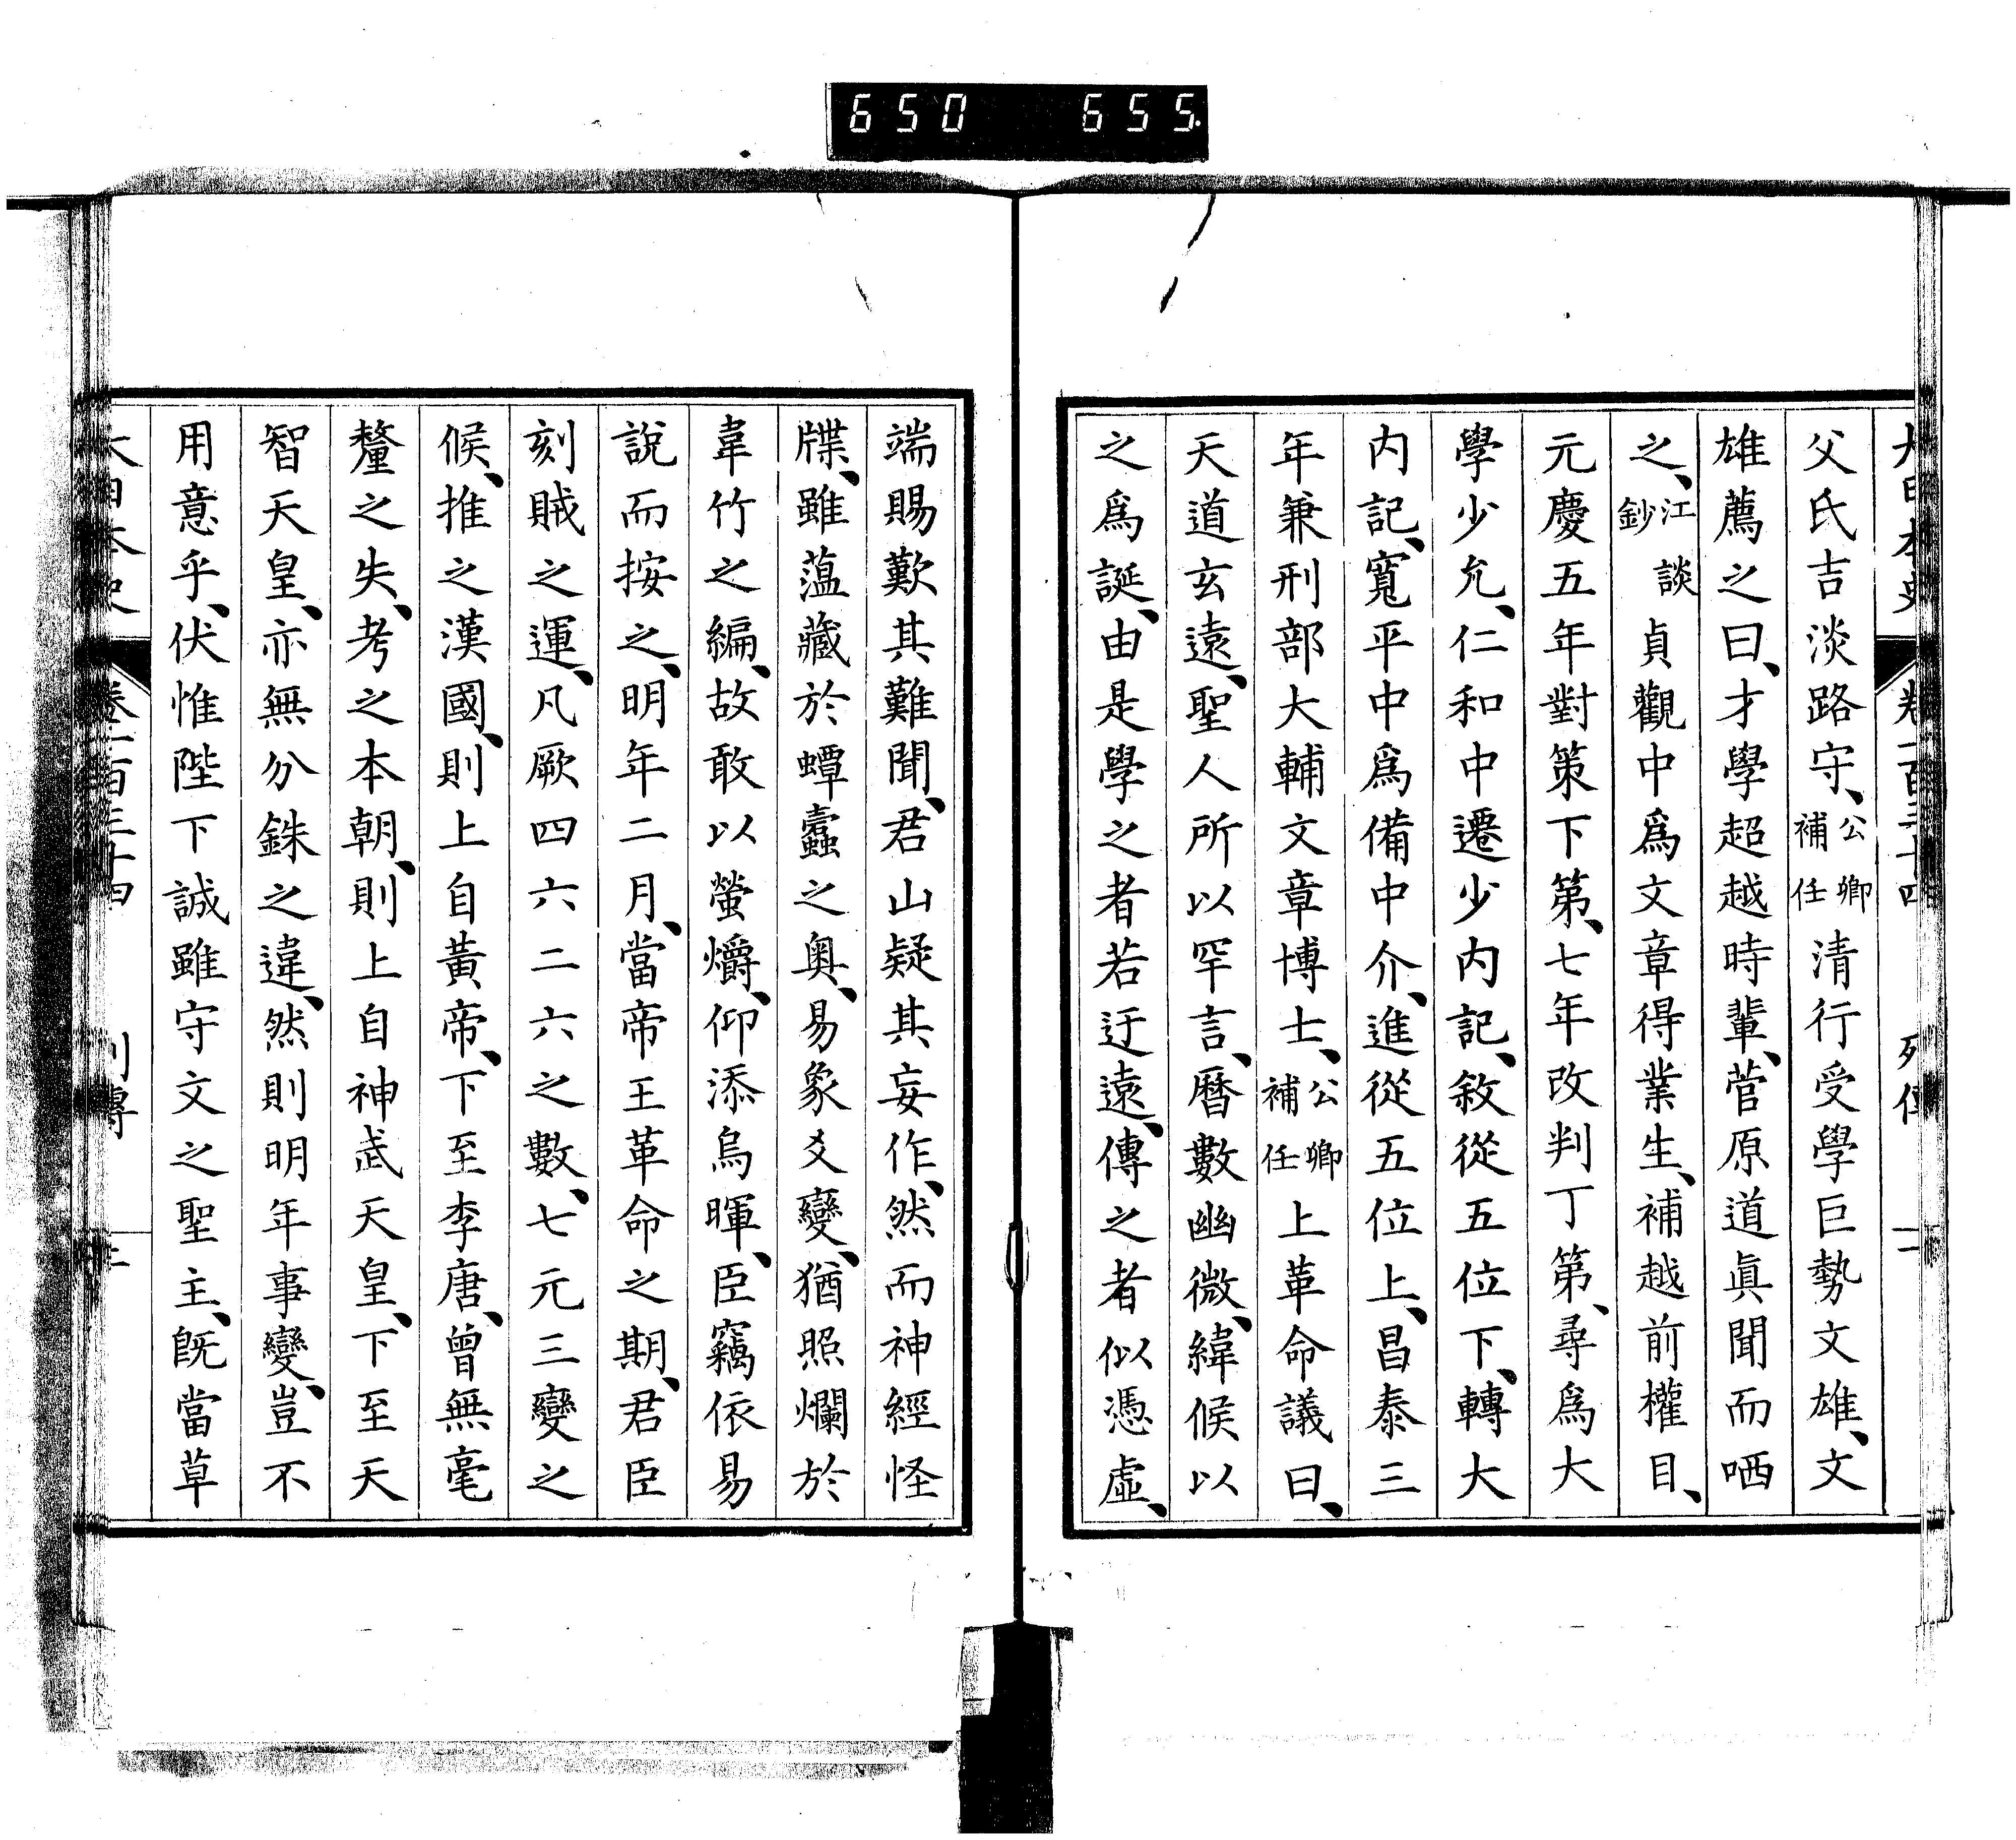 650 655
父氏吉淡路守、公卿補任清行受學巨勢文雄、文
雄薦之曰、才學超越時輩、菅原道眞聞而哂
之、江談鈔貞觀中爲文章得業生、補越前權目、
元慶五年對策下第、七年改判丁第、尋爲大
學少允、仁和中遷少內記、敘從五位下、轉大
內記、寬平中爲備中介、進從五位上、昌泰三
年兼刑部大輔文章博士、公卿補任上革命議曰、
天道玄遠、聖人所以罕言、曆數幽微、緯候以
之爲誕、由是學之者若迂遠、傳之者似憑虛、
端賜歎其難聞、君山疑其妄作、然而神經怪
牒、雖蘊藏於蟫蠹之奧、易象爻變、猶照爛於
韋竹之編、故敢以螢爝、仰添烏暉、臣竊依易
說而按之、明年二月、當帝王革命之期、君臣
刻賊之運、凡厥四六二六之數、七元三變之
候、推之漢國、則上自黃帝、下至李唐、曾無毫
釐之失、考之本朝、則上自神武天皇、下至天
智天皇、亦無分銖之違、然則明年事變、豈不
用意乎、伏惟陛下誠雖守文之聖主、既當草
大日本史 卷一百三十四 列傳 三